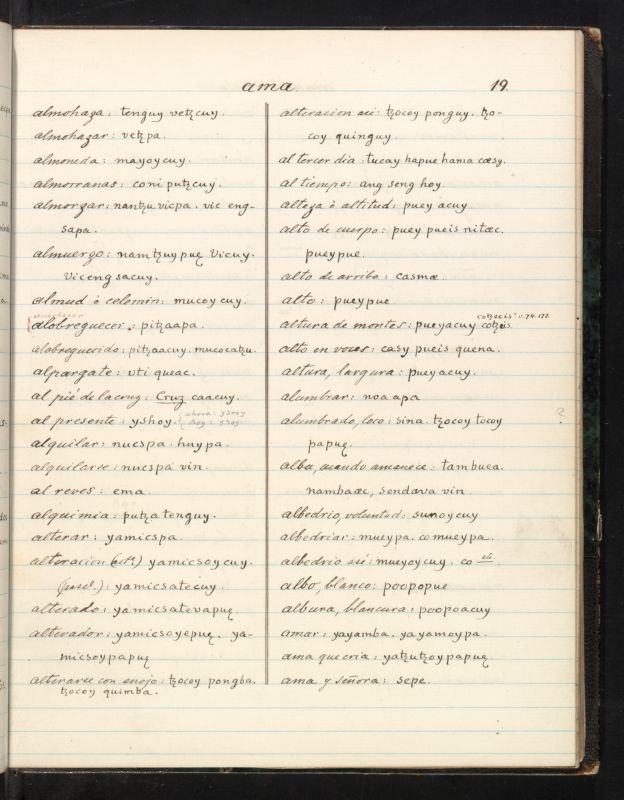 ama.
19.
almohaza: tenguy vetꜩcuy.
almohazar: vetꜩpa.
almoneda: mayoycuy.
almorranas: coni putꜩcuy.
almorzar: nantꜩu vicpa. vic eng-
sapa.
almuerzo: namtꜩuy puę Vicuy.
Vicengsacuy.
almud ò celemin: mucoycuy.
alobreguecer: pitꜩaapa.
alobreguecido: pitꜩaacuy. mucocatꜩu.
alpargate: uti queac.
al pié de la cruz: Cruz caacuy.
al presente: yshoy. ahora: yshoy
hoy: yshoy.
alquilar: nucspa. huypa.
alquilarse: nucspa vin.
al reves: ema.
alquimia: putꜩatenguy.
alterar: yamicspa.
alteracion (act.) yamicsoycuy.
(pasd.): yamicsatecuy.
alterado: yamicsatevapuę.
alterador: yamicsoyepuę. ya-
micsoypapuę
alterarse con enojo: tꜩocoy pongba.
tꜩocoy quimba.
alteracion asi: tꜩocoy ponguy. tꜩo-
coy quinguy.
al tercer dia: tucay hapue hama cæsy.
al tiempo: ang seng hoy.
alteza ò altitud: puey acuy.
alto de cuerpo: puey pueis nitæc.
pueypue.
alto de arriba: casmæ.
alto: pueypue.
cotꜩecis: v. 74. 172.
altura de montes: pueyacuy cotꜩis.
alto en voces: casy pueis quena.
altura, largura: pueyacuy.
alumbrar: noaapa
alumbrado, loco: sina. tꜩocoy tocoy
papuę. ?
alba, cuando amanece: tambuea.
nambaæc, sendava vin.
albedrio, voluntad: sunoycuy
albedriar: mueypa. comueypa.
albedrio asi: mueyoycuy. co etc.
albo, blanco: poopopue
albura, blancura: poopoacuy
amar: yayamba. yayamoypa.
ama que cria: yatꜩutꜩoypapuę.
ama y señora: sepe.